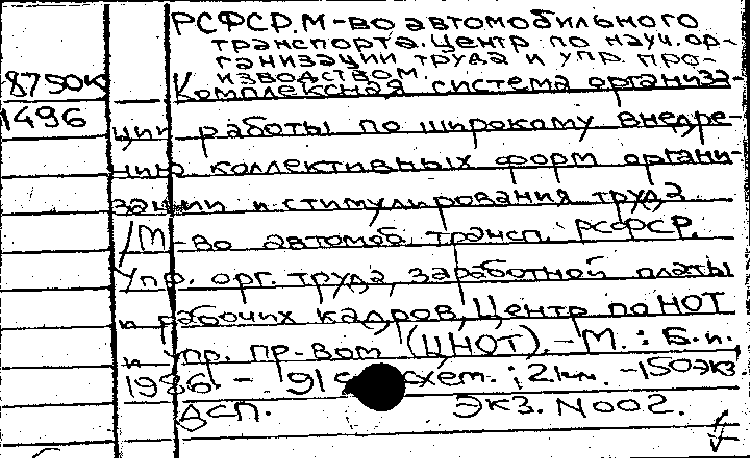 РСФСР. М-во автомобильного
транспорта. Центр по науч. ор-
ганизации труда и упр. про-
изводством.
8750к Комплексная система организа-
1496 ции работы по широкому внедре-
нию коллективных форм органи-
зации и стимулирования труда
/М-во автомоб. трансп. РСФСР.
Упр. орг. труда, заработной платы
и рабочих кадров, Центр по НОТ
и упр. пр-вом (ЦНОТ). – М. : Б.и.,
1986. – 91 схем. ; 21 см. – 150 экз.
ДСП. Экз. N 002.